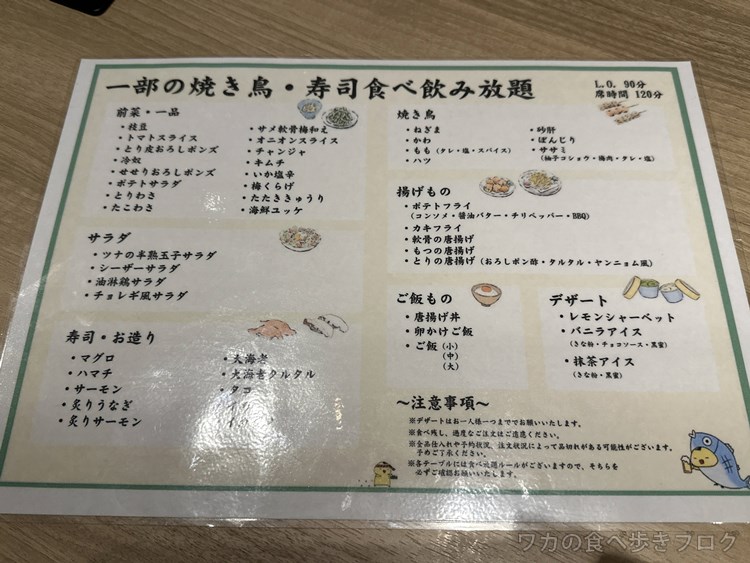 一部の焼き鳥・寿司食べ飲み放題
L.O. 90分
席時間 120分
前菜・一品
・枝豆
・トマトスライス
・とり皮おろしポンズ
・冷奴
・せせりおろしポンズ
・ポテトサラダ
・とりわさ
・たこわさ
・サメ軟骨梅和え
・オニオンスライス
・チャンジャ
・キムチ
・いか塩辛
・梅くらげ
・たたききゅうり
・海鮮ユッケ
サラダ
・ツナの半熟玉子サラダ
・シーザーサラダ
・油淋鶏サラダ
・チョレギ風サラダ
寿司・お造り
・マグロ
・ハマチ
・サーモン
・炙りうなぎ
・炙りサーモン
・大海老
・大海老タルタル
・タコ
焼き鳥
・ねぎま
・かわ
・もも (タレ・塩・スパイス)
・ハツ
・砂肝
・ぼんじり
・ササミ
(柚子コショウ・梅肉・タレ・塩)
揚げもの
・ポテトフライ
(コンソメ・醤油バター・チリペッパー・BBQ)
・カキフライ
・軟骨の唐揚げ
・もつの唐揚げ
・とりの唐揚げ (おろしポン酢・タルタル・ヤンニョム風)
ご飯もの
・唐揚げ丼
・卵かけご飯
・ご飯 (小)
(中)
(大)
デザート
・レモンシャーベット
・バニラアイス
(きな粉・チョコソース・黒蜜)
・抹茶アイス
(きな粉・黒蜜)
〜注意事項〜
※デザートはお一人様一つまででお願いいたします。
※食べ残し、過度なご注文はご遠慮ください。
※全品仕入れや予約状況、注文状況によって品切れがある可能性がございます。
予めご了承ください。
※各テーブルには食べ放題ルールがございますので、そちらを
必ずご確認お願いいたします。
ワカの食べ歩きブログ